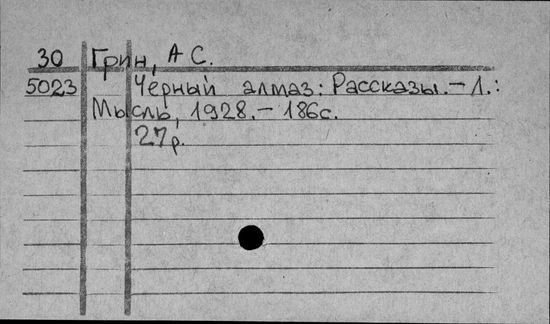 30 Грин, А С.
5023 Черный алмаз: Рассказы. – Л.:
Мысль, 1928. – 186с.
27р.